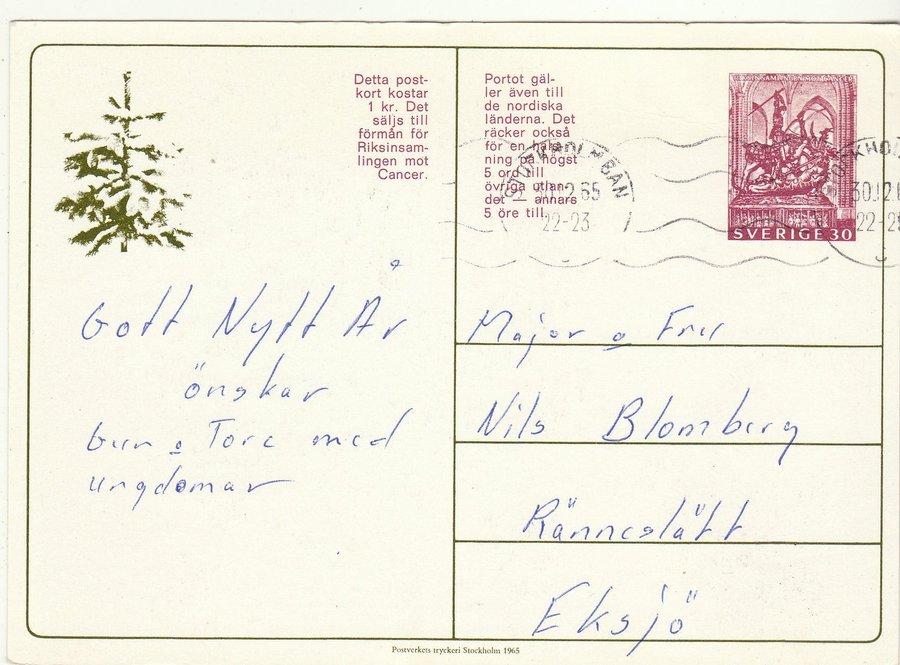 Detta post-
kort kostar
1 kr. Det
säljs till
förmån för
Riksinsam-
lingen mot
Cancer.
Portot gäl-
ler även till
de nordiska
länderna. Det
räcker också
för en häls-
ning på högst
5 ord till
övriga utlan-
det – annars
5 öre till.
RIKSINSAMLINGEN MOT CANCER
SVERIGE 30
STOCKHOLM BAN
30.12.65
22-23
STOCKHO
30.12.6
22-2
Gott Nytt År
önskar
Gun o Tore med
ungdomar
Major o Fru
Nils Blomberg
Ränneslätt
Eksjö
Postverkets tryckeri Stockholm 1965